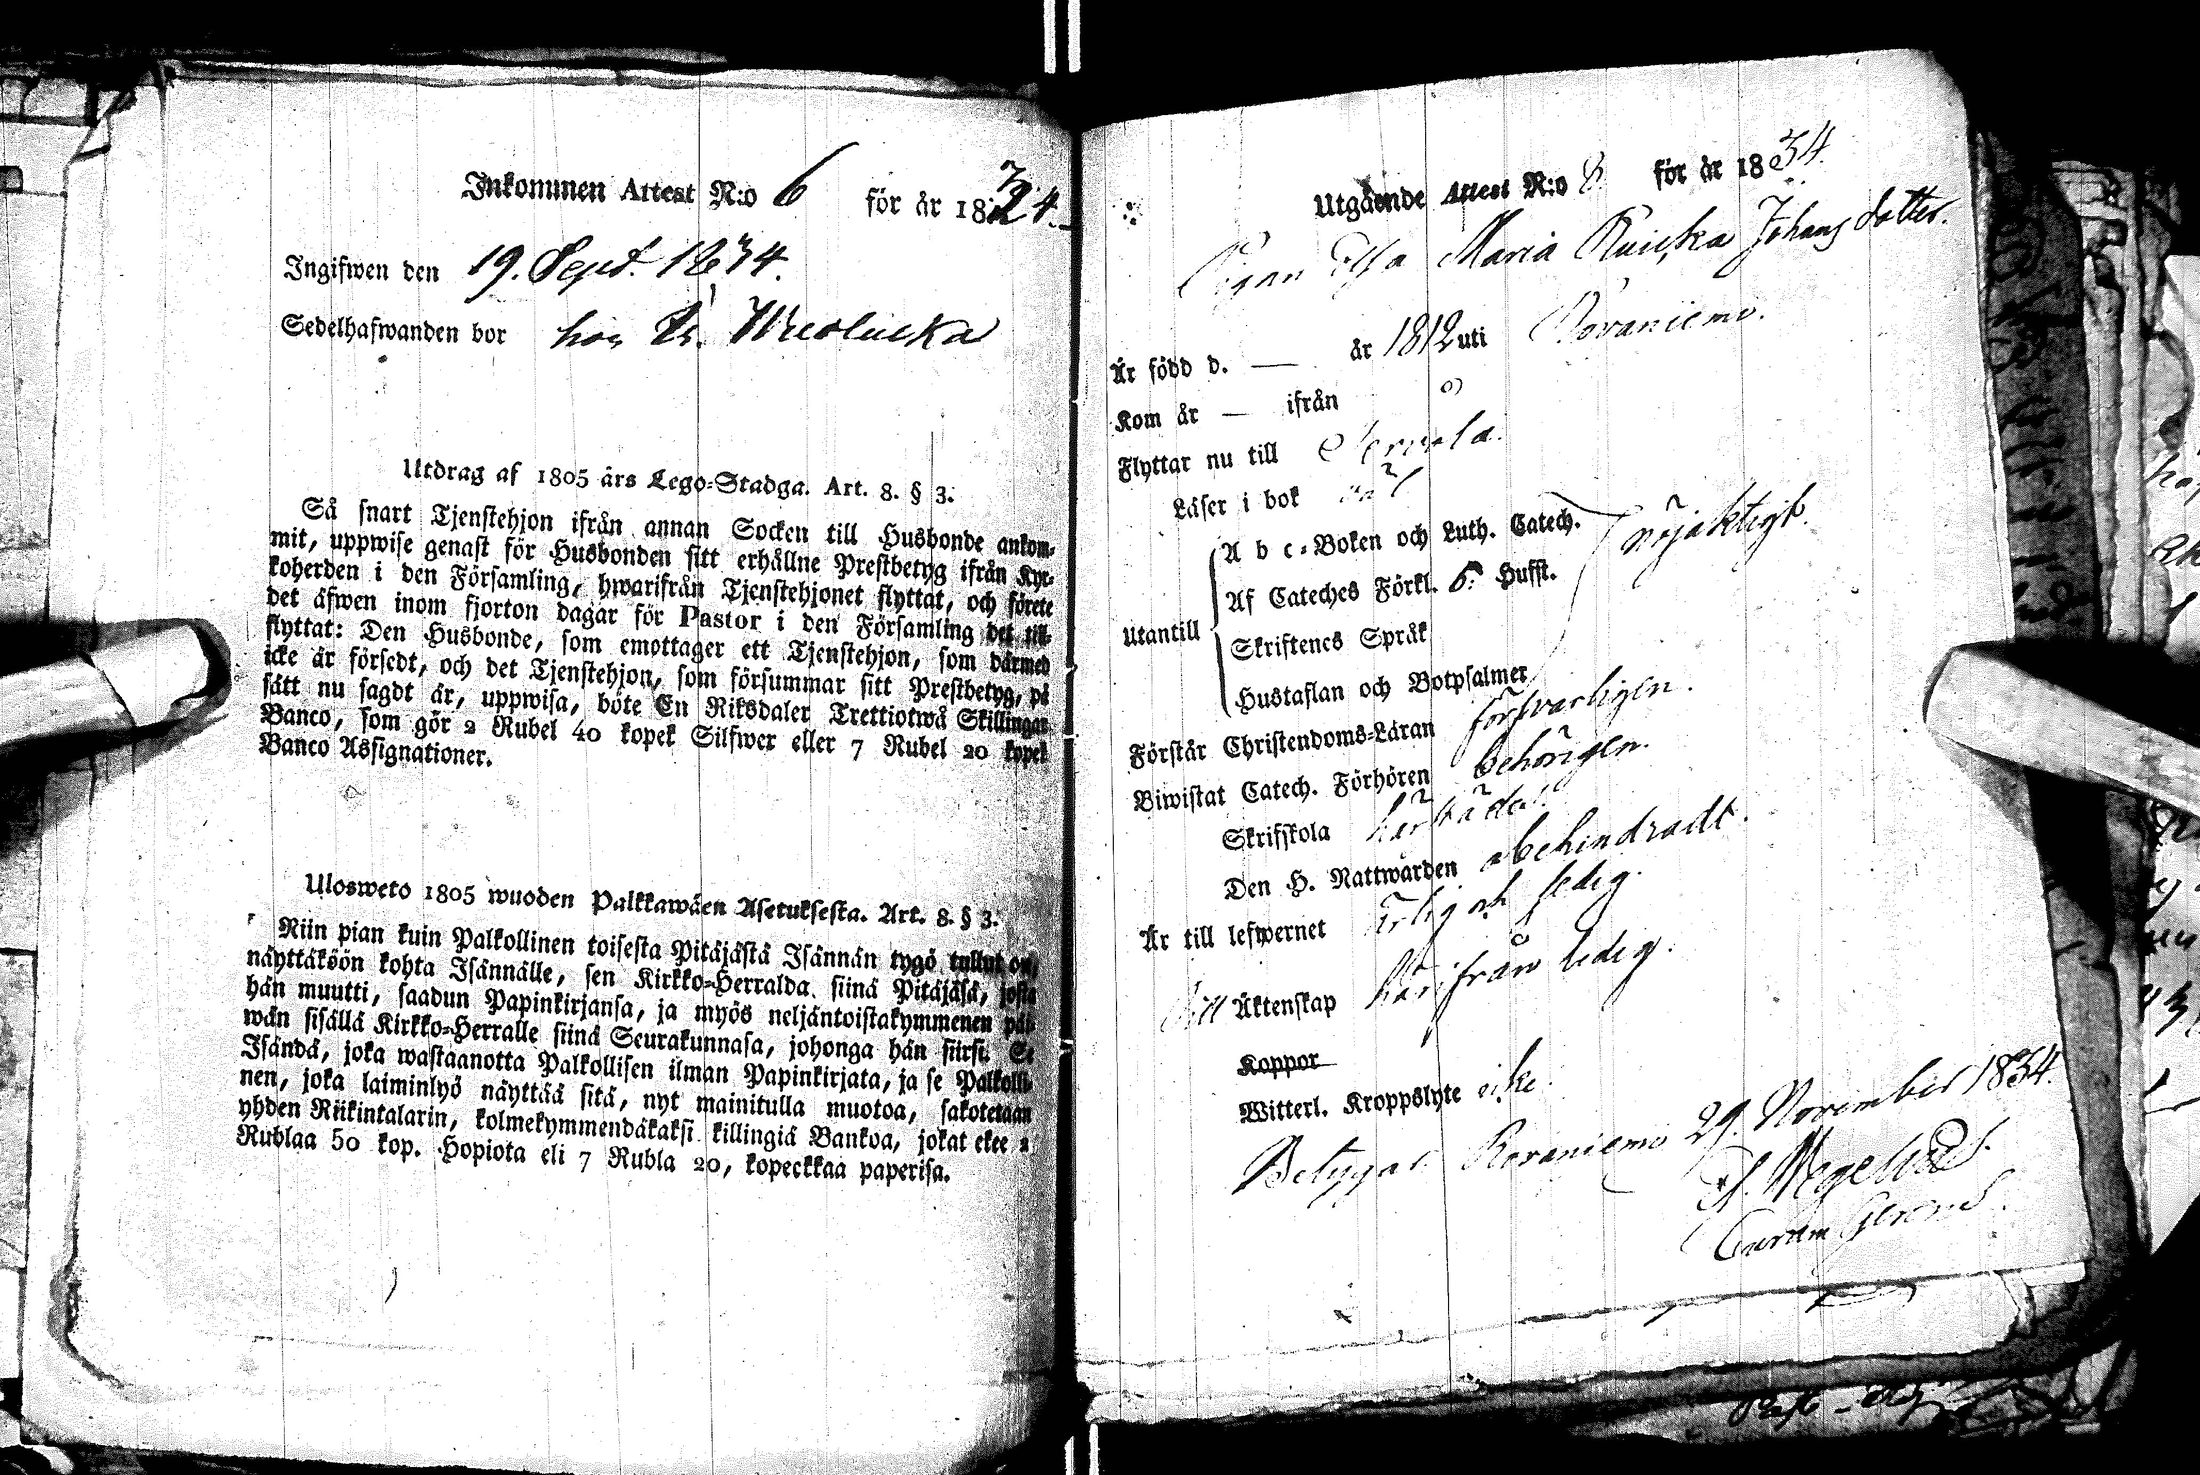 Inkommen Attest N:o 6 för år 1834.
Ingifwen den 19. Sept. 1834.
Sedelhafwanden bor hos
Utdrag af 1805 års Lego-Stadga. Art. 8. § 3.
Så snart Tjenstehjon ifrån annan Socken till Husbonde ankom-
mit, uppwise genast för Husbonden sitt erhållne Prestbetyg ifrån Kyr-
koherden i den Församling, hwarifrån Tjenstehjonet flyttat, och förete
det äfwen inom fjorton dagar för Pastor i den Församling det till-
flyttat: Den Husbonde, som emottager ett Tjenstehjon, som därmed
icke är försedt, och det Tjenstehjon, som försummar sitt Prestbetyg, på
sätt nu sagdt är, uppwisa, böte En Riksdaler Trettiotwå Skillingar
Banco, som gör 2 Rubel 40 kopek Silfwer eller 7 Rubel 20 kopek
Banco Assignationer.
Ulosweto 1805 wuoden Palkkawäen Asetuksesta. Art. 8. § 3.
Niin pian kuin Palkollinen toisesta Pitäjästä Isännän tygö tullut on,
näyttäköön kohta Isännälle, sen Kirkko-Herralda siinä Pitäjäsä, josta
hän muutti, saadun Papinkirjansa, ja myös neljäntoistakymmenen päi-
wän sisällä Kirkko-Herralle siinä Seurakunnasa, johonga hän siirsi. Se
Isändä, joka wastaanotta Palkollisen ilman Papinkirjata, ja se Palkolli-
nen, joka laiminlyö näyttää sitä, nyt mainitulla muotoa, sakotetaan
yhden Riikintalarin, kolmekymmendäkaksi killingiä Bankoa, jokat ekee 2
Rublaa 50 kop. Hopiota eli 7 Rubla 20, kopeckkaa paperisa.
Utgående Attest N:o 8 för år 1834.
Pigan Maria Johans dotter.
Är född d. — år 1812 uti Rovaniemi.
Kom år — ifrån
Flyttar nu till
Läser i bok
Utantill
A b c-Boken och Luth. Catech. nöjaktigt.
Af Cateches Förkl. 6. Hufst.
Skriftenes Språk
Hustaflan och Botpsalmer
Förstår Christendoms-Läran försvarligen.
Biwistat Catech. Förhören behörigen.
Skriftskola härstädes.
Den H. Nattwarden obehindradt.
Är till lefwernet ärlig och sedig.
till Äktenskap härifrån ledig.
Koppor
Witterl. Kroppslyte ej
Betygar Rovaniemi 29. November 1834.